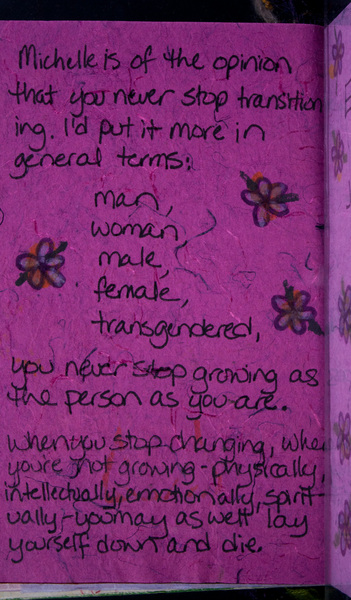 Michelle is of the opinion
that you never stop transition
ing. I'd put it more in
general terms:
man,
woman,
male,
female,
transgendered,
you never stop growing as
the person as you are.
when you stop changing, when
you're not growing - physically,
intellectually, emotionally, spirit-
ually - you may as well lay
yourself down and die.